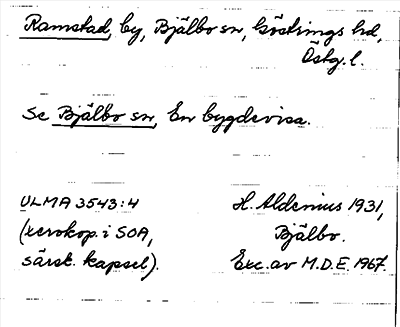 Ramstad, by, Bjälbo sn, Göstrings hd,
Östg. l.
Se Bjälbo sn, En bygdevisa.
ULMA 3543:4
(xerokop. i SOA,
särsk. kapsel).
H. Aldenius 1931,
Bjälbo.
Exc. av M.D.E. 1967.